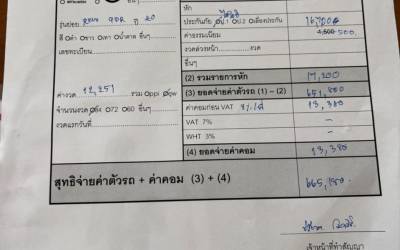 หัก
รุ่นย่อย
ประกันภัย ป1 ป2 เปลี่ยนประกัน 16,700
สี ดำ ขาว เทา น้ำตาล อื่นๆ
ค่าธรรมเนียม 4,500 500
เลขทะเบียน
งวดล่วงหน้า งวด
อื่นๆ
(2) รวมรายการหัก 17,200
ค่างวด 12,251 รวม ppi
(3) ยอดจ่ายค่าตัวรถ (1) – (2) 651,800
จำนวนงวด 72 60 อื่นๆ
ค่าคอมก่อน VAT 13,380
งวดแรกวันที่
VAT 7% –
WHT 3% –
(4) ยอดจ่ายค่าคอม 13,380
สุทธิจ่ายค่าตัวรถ + ค่าคอม (3) + (4) 665,180
เจ้าหน้าที่ทำสัญญา